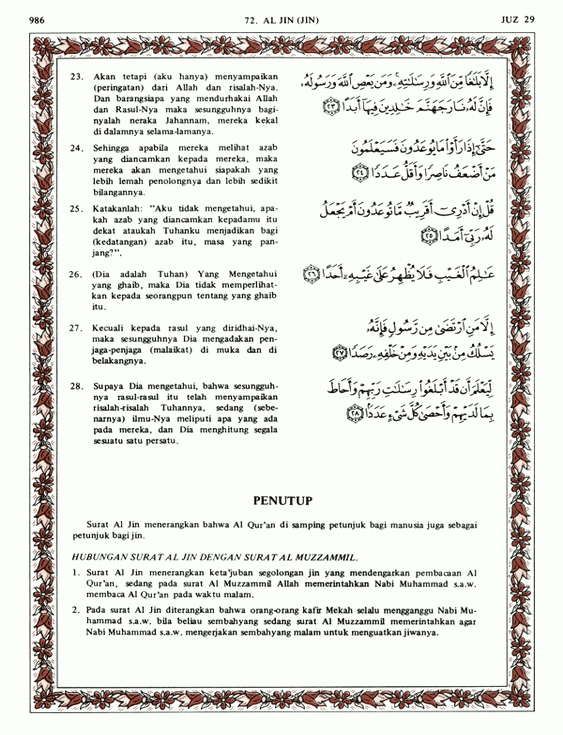 986
72. AL JIN (JIN)
JUZ 29
23. Akan tetapi (aku hanya) menyampaikan
(peringatan) dari Allah dan risalah-Nya.
Dan barangsiapa yang mendurhakai Allah
dan Rasul-Nya maka sesungguhnya bagi-
nyalah neraka Jahannam, mereka kekal
di dalamnya selama-lamanya.
إِلَّا بَلَٰغًا مِّنَ ٱللَّهِ وَرِسَٰلَٰتِهِۦ وَمَن يَعْصِ ٱللَّهَ وَرَسُولَهُۥ
فَإِنَّ لَهُۥ نَارَ جَهَنَّمَ خَٰلِدِينَ فِيهَآ أَبَدًا ﴿٢٣﴾
24. Sehingga apabila mereka melihat azab
yang diancamkan kepada mereka, maka
mereka akan mengetahui siapakah yang
lebih lemah penolongnya dan lebih sedikit
bilangannya.
حَتَّىٰٓ إِذَا رَأَوْا۟ مَا يُوعَدُونَ فَسَيَعْلَمُونَ
مَنْ أَضْعَفُ نَاصِرًا وَأَقَلُّ عَدَدًا ﴿٢٤﴾
25. Katakanlah: "Aku tidak mengetahui, apa-
kah azab yang diancamkan kepadamu itu
dekat ataukah Tuhanku menjadikan bagi
(kedatangan) azab itu, masa yang pan-
jang?".
قُلْ إِنْ أَدْرِىٓ أَقَرِيبٌ مَّا تُوعَدُونَ أَمْ يَجْعَلُ
لَهُۥ رَبِّىٓ أَمَدًا ﴿٢٥﴾
26. (Dia adalah Tuhan) Yang Mengetahui
yang ghaib, maka Dia tidak memperlihat-
kan kepada seorangpun tentang yang ghaib
itu.
عَٰلِمُ ٱلْغَيْبِ فَلَا يُظْهِرُ عَلَىٰ غَيْبِهِۦٓ أَحَدًا ﴿٢٦﴾
27. Kecuali kepada rasul yang diridhai-Nya,
maka sesungguhnya Dia mengadakan pen-
jaga-penjaga (malaikat) di muka dan di
belakangnya.
إِلَّا مَنِ ٱرْتَضَىٰ مِن رَّسُولٍ فَإِنَّهُۥ
يَسْلُكُ مِنۢ بَيْنِ يَدَيْهِ وَمِنْ خَلْفِهِۦ رَصَدًا ﴿٢٧﴾
28. Supaya Dia mengetahui, bahwa sesungguh-
nya rasul-rasul itu telah menyampaikan
risalah-risalah Tuhannya, sedang (sebe-
narnya) ilmu-Nya meliputi apa yang ada
pada mereka, dan Dia menghitung segala
sesuatu satu persatu.
لِّيَعْلَمَ أَن قَدْ أَبْلَغُوا۟ رِسَٰلَٰتِ رَبِّهِمْ وَأَحَاطَ
بِمَا لَدَيْهِمْ وَأَحْصَىٰ كُلَّ شَىْءٍ عَدَدًۢا ﴿٢٨﴾
PENUTUP
Surat Al Jin menerangkan bahwa Al Qur'an di samping petunjuk bagi manusia juga sebagai
petunjuk bagi jin.
HUBUNGAN SURAT AL JIN DENGAN SURAT AL MUZZAMMIL.
1. Surat Al Jin menerangkan keta'juban segolongan jin yang mendengarkan pembacaan Al
Qur'an, sedang pada surat Al Muzzammil Allah memerintahkan Nabi Muhammad s.a.w.
membaca Al Qur'an pada waktu malam.
2. Pada surat Al Jin diterangkan bahwa orang-orang kafir Mekah selalu mengganggu Nabi Mu-
hammad s.a.w. bila beliau sembahyang sedang surat Al Muzzammil memerintahkan agar
Nabi Muhammad s.a.w. mengerjakan sembahyang malam untuk menguatkan jiwanya.